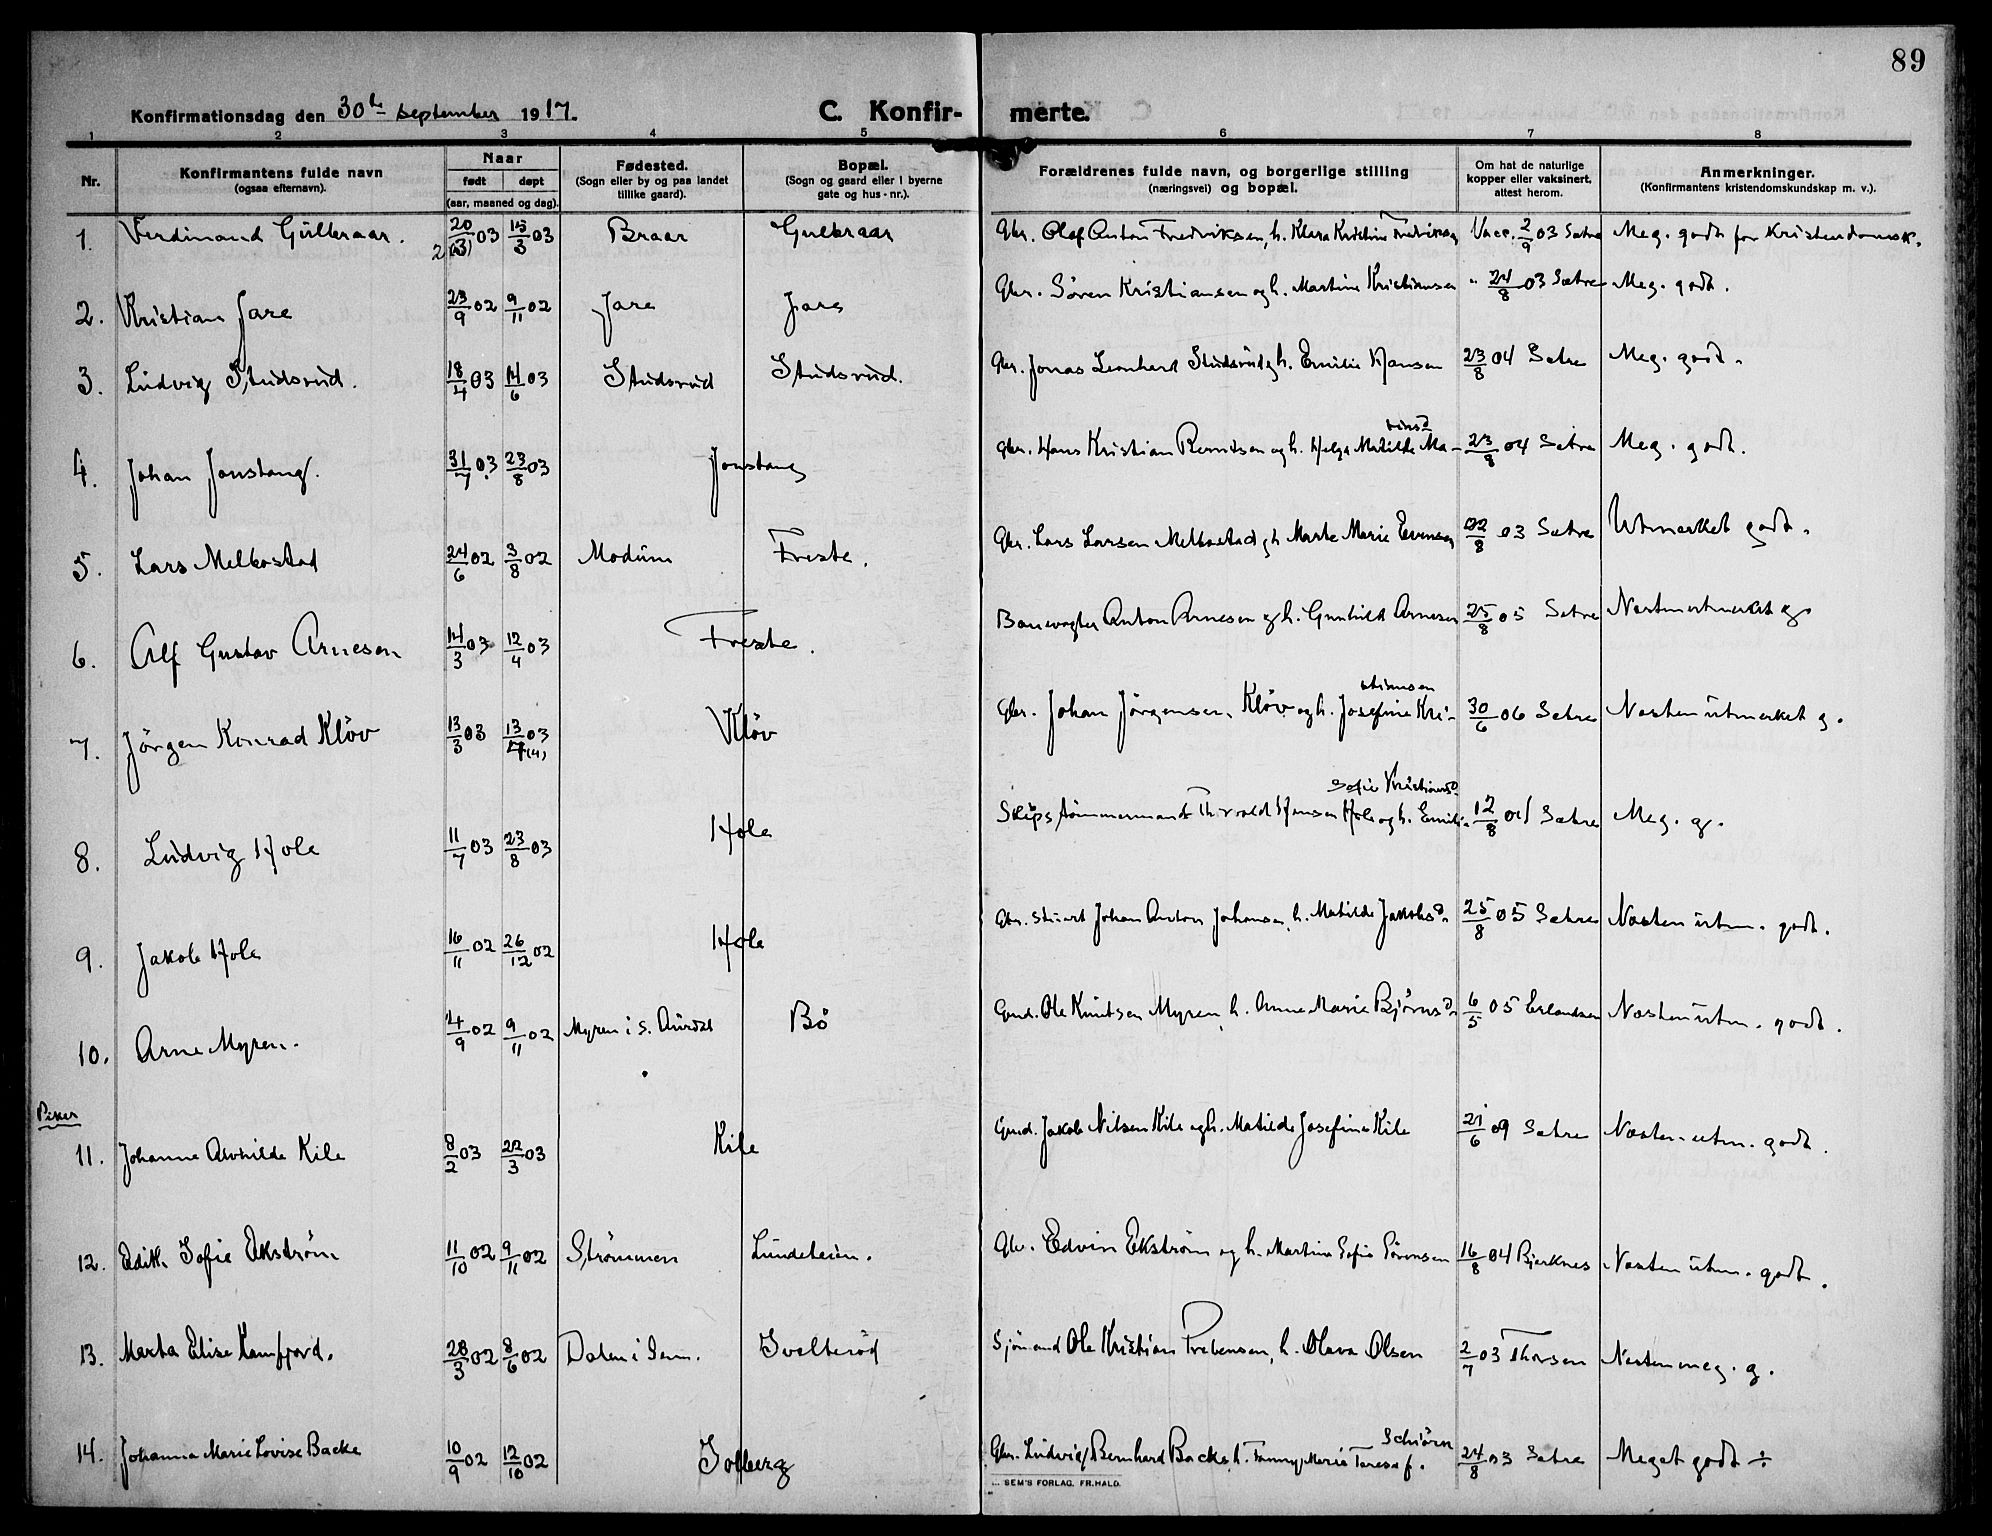 89
Konfirmationsdag den 30te september 1917.
C. Konfir- merte.
1 2 3 4 5 6 7 8
Nr. Konfirmantens fulde navn (ogsaa efternavn). Naar født døpt (aar, maaned og dag). Fødested. (Sogn eller by og paa landet tillike gaard). Bopæl. (Sogn og gaard eller i byerne gate og hus-nr.). Forældrenes fulde navn, og borgerlige stilling (næringsvei) og bopæl. Om hat de naturlige kopper eller vaksinert, attest herom. Anmerkninger. (Konfirmantens kristendomskundskap m. v.).
1. Ferdinand Gulbraar. 20/2 (3) 03 15/3 03 Braar Gulbraar Gbr. Olaf Anton Fredriksen, h. Klara Kristine Fredriksen Vacc. 2/9 03 Sætre Meg. godt for Kristendomsk.
2. Kristian Jare 23/9 02 9/11 02 Jare Jare Gbr. Søren Kristiansen og h. Martine Kristiansen " 24/8 03 Sætre Meg. godt.
3. Ludvig Studsrud. 18/4 03 14/6 03 Studsrud Studsrud. Gbr. Jonas Leonhard Studsrud og h. Emilie Hansen 23/8 04 Sætre Meg. godt.
4. Johan Jonstang. 31/7 03 23/8 03 Jonstang Gbr. Hans Kristian Berntsen og h. Helga Matilde Ma- 23/8 04 Sætre Meg. godt.
5. Lars Melbostad 24/6 02 3/8 02 Modum Freste. Gbr. Lars Larsen Melbostad og h. Marte Marie Evensen 22/8 03 Sætre Utmerket godt.
6. Alf Gustav Arnesen 14/3 03 12/4 03 Freste. Banevogter Anton Arnesen og h. Gunhild Arnesen 25/8 05 Sætre Næstenutmerket g.
7. Jörgen Konrad Klöv 13/3 03 13/4 (4) 03 Klöv Gbr. Johan Jörgensen, Klöv og h. Josefine Kri-stiansen 30/6 06 Sætre Næsten utmerket g.
8. Ludvig Hole 11/7 03 23/8 03 Hole Skipstömmermand Thorvald Hansen Hole og h. Emilie Sofie Kristiansd. 12/8 04 Sætre Meg. g.
9. Jakob Hole 16/11 02 26/12 02 Hole Gbr. Stuert Johan Anton Johansen, h. Matilde Jakobsd. 25/8 05 Sætre Næsten utm. godt.
10. Arne Myren. 4/9 02 9/11 02 Myren i S. Aurdal Bö Gmd. Ole Knutsen Myren, h. Anne Marie Björnsd. 6/5 05 Erlandsen Næsten utm. godt.
Piker
11. Johanne Alvhilde Kile 8/2 03 22/3 03 Kile Gmd. Jakob Nilsen Kile og h. Matilde Josefine Kile 21/6 09 Sætre Næsten utm. godt.
12. Edith Sofie Ekström 11/10 02 9/11 02 Strömmen Lundeteien. Gbr. Edvin Ekström og h. Martine Sofie Sörensen 16/8 04 Bjerknes Næsten utm. godt.
13. Marta Elise Kamfjord. 28/3 02 8/6 02 Dalen i Sem. Svelteröd Sjömand Ole Kristian Prebensen, h. Olava Olsen 2/7 03 Thorsen Næsten meg. g.
14. Johanna Marie Lovise Backe 10/9 02 12/10 02 Solberg Gbr. Ludvig Bernhard Backe, h. Fanny Marie Teresa f. Schiörn 24/8 03 Sætre Meget godt ÷
SEM'S FORLAG. FR.HALD.